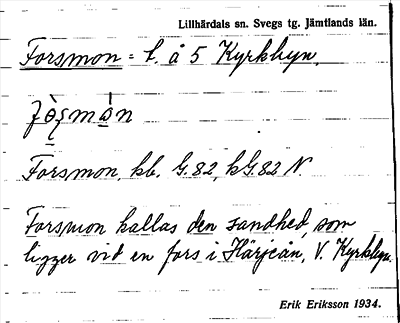 Lillhärdals sn. Svegs tg. Jämtlands län.
Forsmon = l. å 5 Kyrkbyn.
Forsmon, kb. G.82, kG.82 N
Forsmon kallas den sandhed, som
ligger vid en fors i Härjeån, V. Kyrkbyn.
Erik Eriksson 1934.